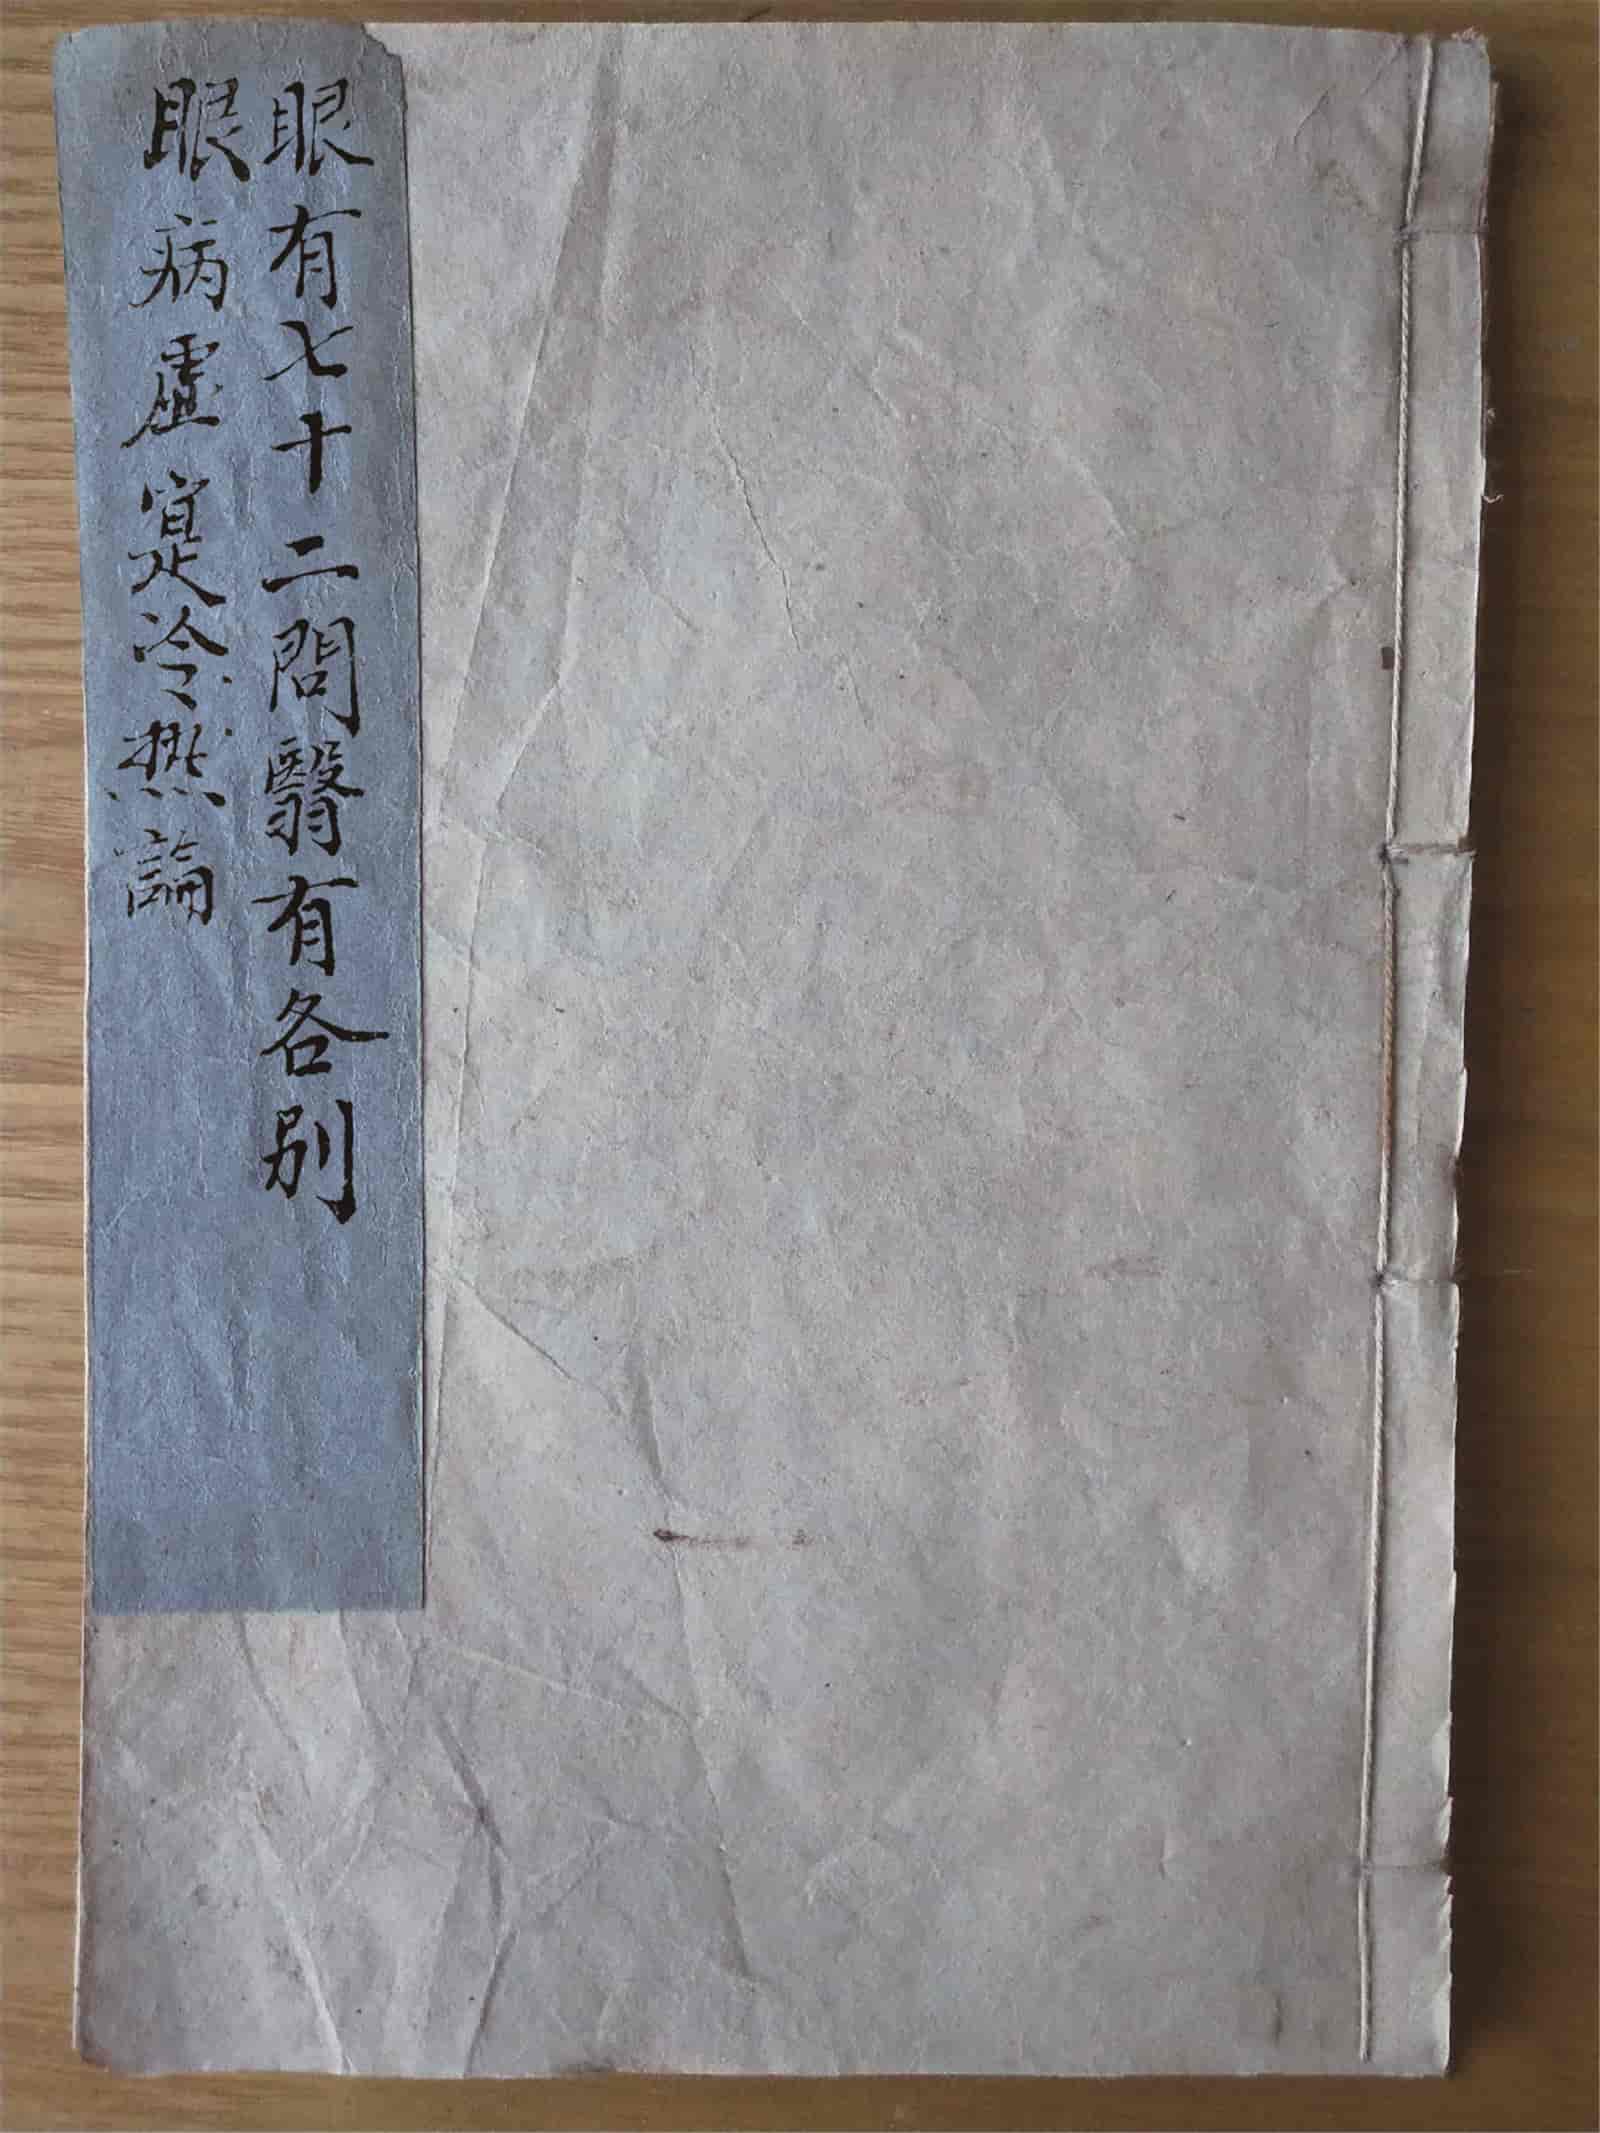 眼有七十二問翳有各别
眼病虛寔冷热論